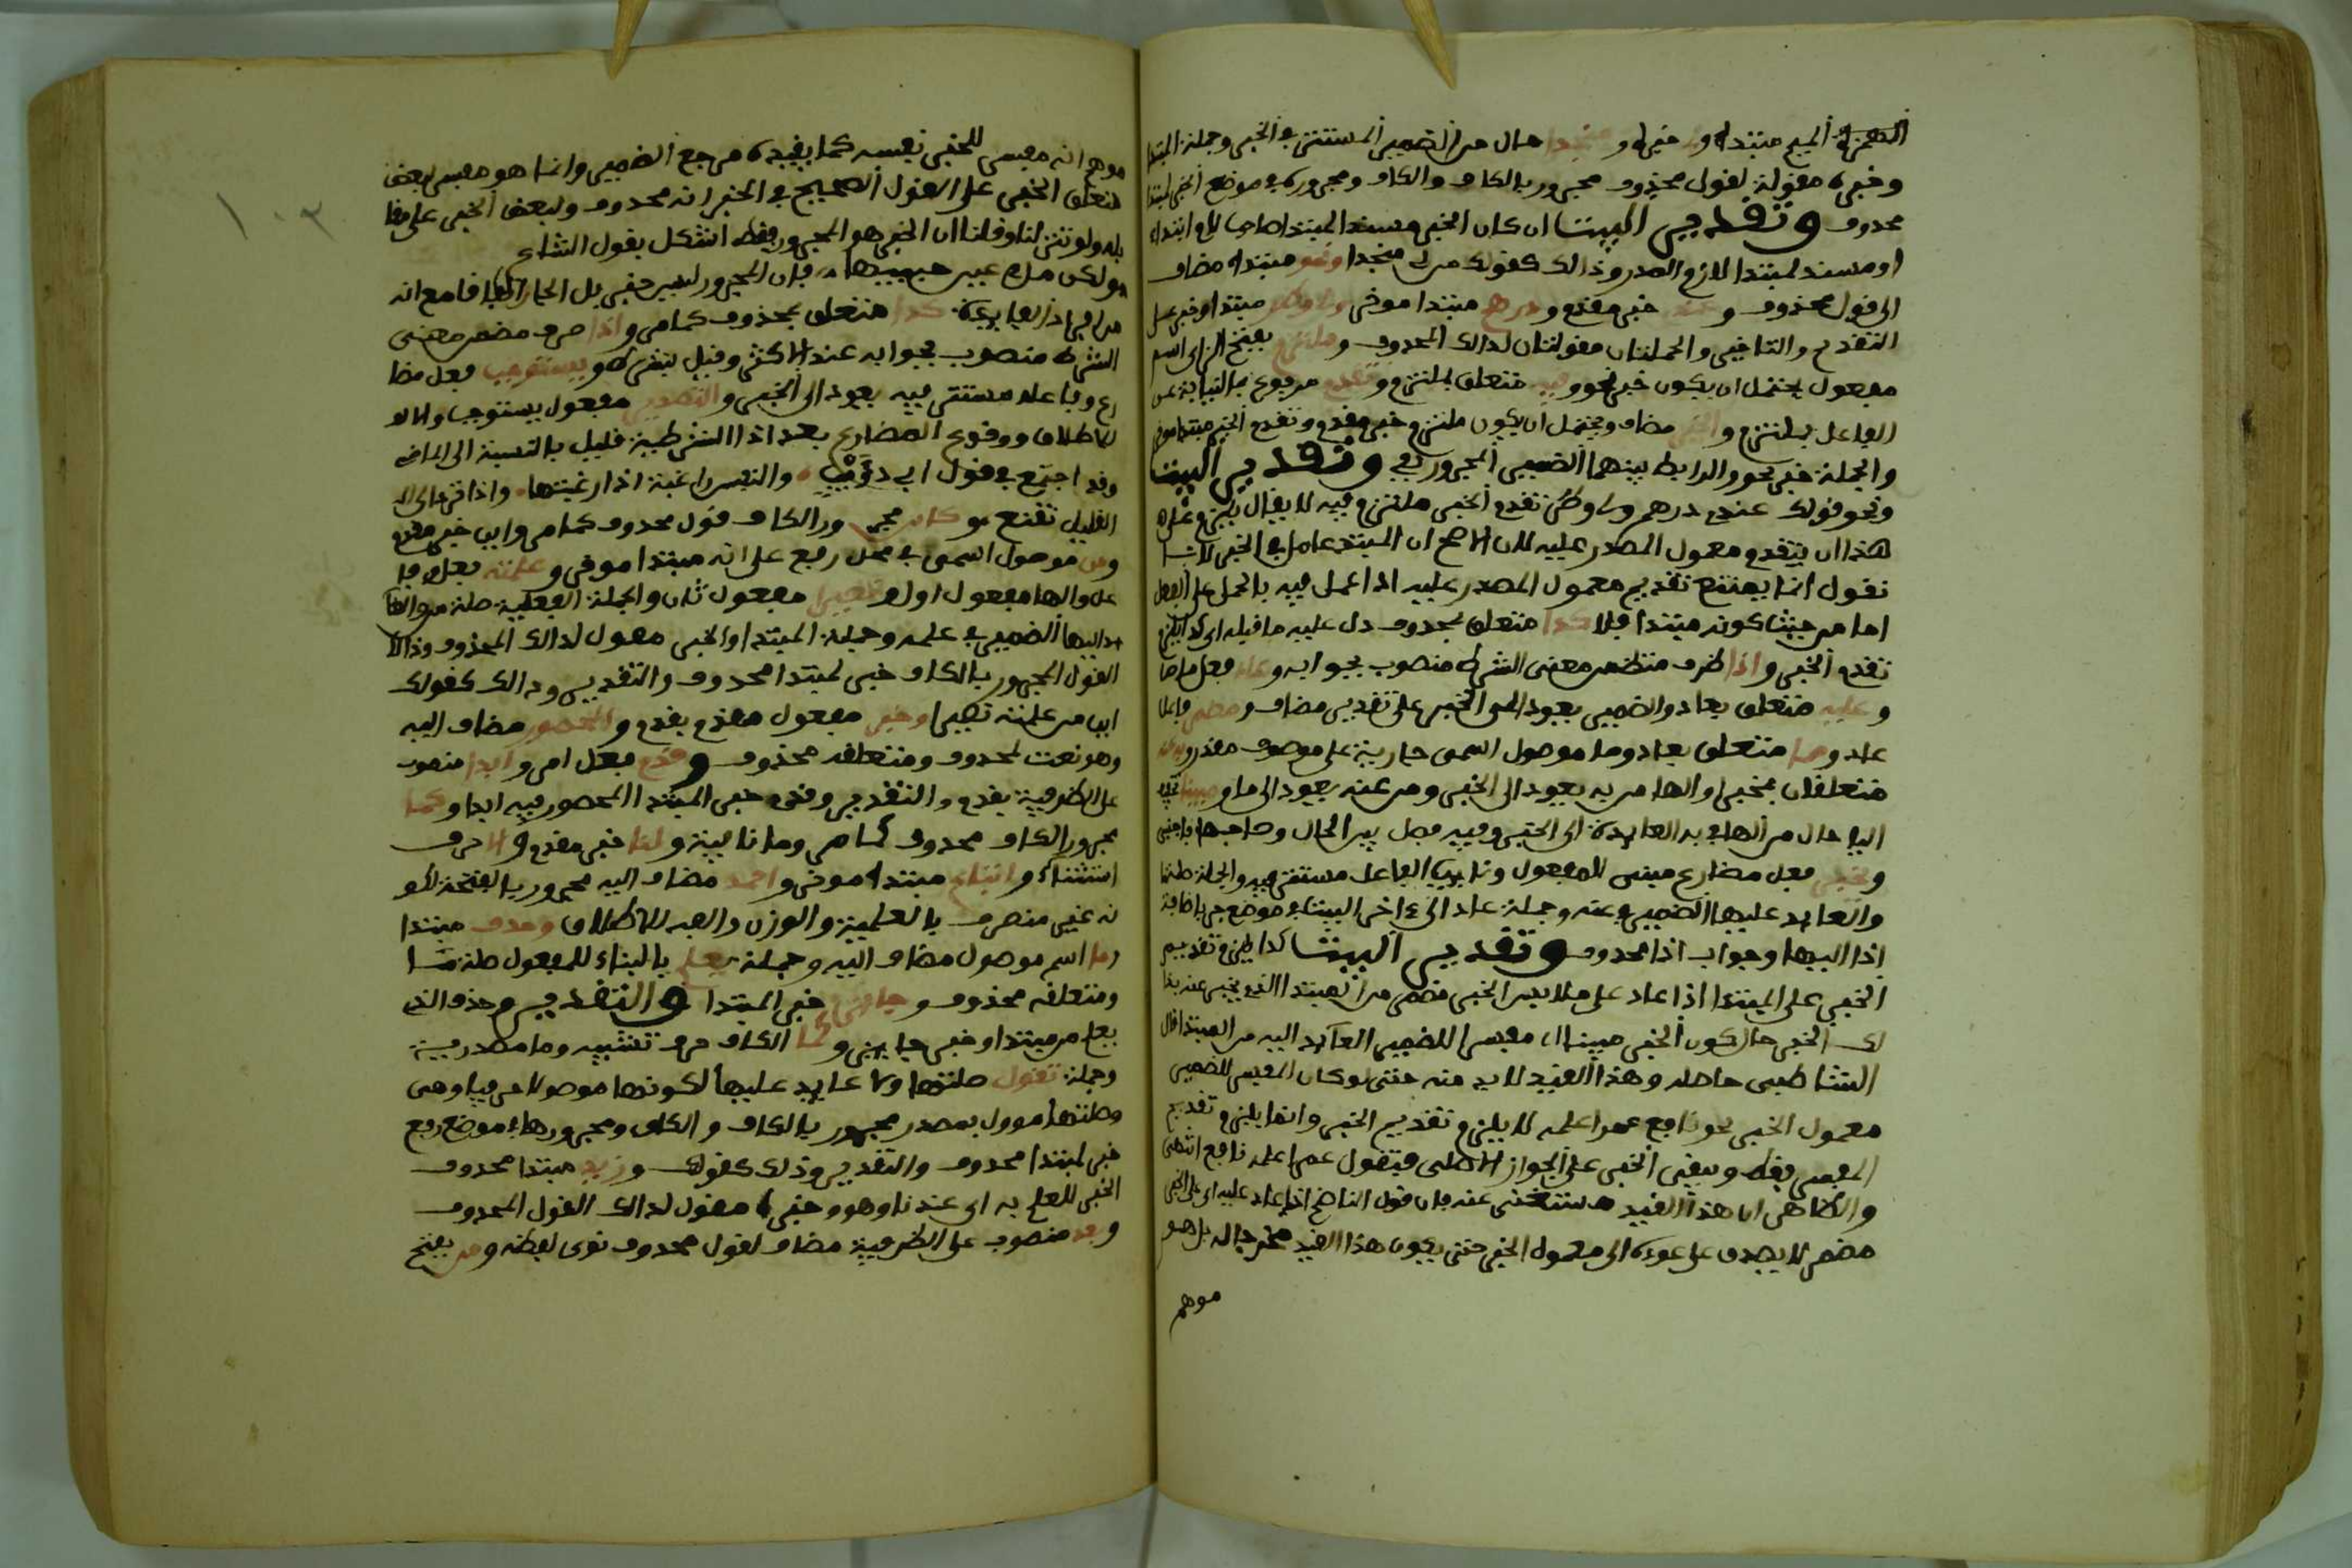 الهمزة الميم مبتدا وخبره ومنجدا حال من الضمير المستتر في الخبر وجملة المبتدا
وخبره مقولة لقول محذوف مجرور بالكاف والكاف ومجروره في موضع الخبر لمبتدا
محذوف وتقدير البيت ان كان الخبر مسندا لمبتدا لام ابتداء
او مسند لمبتدا لازم الصدر وذالك كقولك من لي منجدا ونحو مبتدا مضاف
الى قول محذوف وعندي خبر مقدم ودرهم مبتدا موخر ولي وطر مبتدا وخبر على
التقديم والتاخير والجملتان مقولتان لذالك المحذوف وملتزم بفتح الزاي اسم
مفعول يحتمل ان يكون خبر نحو وفيه متعلق بملتزم وتقدم مرفوع بالنيابة عن
الفاعل بملتزم والخبر مضاف ويحتمل ان يكون ملتزم خبر مقدم وتقدم الخبر مبتدا موخر
والجملة خبر نحو والرابط بينهما الضمير المجرور بفي وتقدير البيت
ونحو قولك عندي درهم ولي وطر تقدم الخبر ملتزم فيه لا يقال يلزم على
هذا ان يتقدم معمول المصدر عليه لان الاصح ان المبتدا عامل في الخبر لانا
نقول انما يمتنع تقديم معمول المصدر عليه اذا عمل فيه بالحمل على الفعل
اما من حيث كونه مبتدا فلا كذا متعلق بمحذوف دل عليه ما قبله اي كذا يلتزم
تقدم الخبر واذا ظرف متضمن معنى الشرط منصوب بجوابه وعاد فعل ماض
وعليه متعلق بعاد والضمير يعود الى الخبر على تقدير مضاف ومضمر فاعل
عاد ومما متعلق بعاد وما موصول اسمي جارية على موصوف مقدر وبه عنه
متعلقان بيخبر والهاء من به يعود الى الخبر ومن عنه يعود الى ما ومبينا
اليا حال من الهاء في به العايدة الى الخبر وفيه فصل بين الحال وصاحبها باجنبي
ويخبر فعل مضارع مبني للمفعول ونايب الفاعل مستتر فيه والجملة صلة ما
والعايد عليها الضمير في عنه وجملة عاد الى ءاخر البيت في موضع جر باضافة
اذا اليها وجواب اذا محذوف وتقدير البيت كذا يلزم تقديم
الخبر على المبتدا اذا عاد على ملابس الخبر مضمر من المبتدا الذي يخبر عنه بذا
لك الخبر حال كون الخبر مبينا اي مفسرا للضمير العايد اليه من المبتدا قال
الشاطبي حاصله وهذا القيد لا بد منه حتى لو كان المفسر للضمير
معمول الخبر نحو نافع عمرا علمه لا يلزم تقديم الخبر وانما يلزم تقديم
المفسر فقط ويبقى الخبر على الجواز الاصلي فتقول عمرا علمه نافع انتهى
والظاهر ان هذا القيد مستغنى عنه فان قول الناظم اذا عاد عليه اي على الخبر
مضمر لا يصدق على عوده الى معمول الخبر حتى يكون هذا القيد مخرجا له بل هو
موهم
موهم انه مفسر للخبر نفسه كما يفيده مرجع الضمير وانما هو مفسر لبعض
متعلق الخبر على القول الصحيح في الخبر انه محذوف ولبعض الخبر على مقا
بله ولو تنزلنا وقلنا ان الخبر هو المجرور فقط اشكل بقول الشاعر
ولكن ملء عين حبيبها فان المجرور ليس خبر بل الجار اتفاقا مع انه
من افراد القاعدة كذا متعلق بمحذوف كما مر واذا ظرف مضمن معنى
الشرط منصوب بجوابه عند الاكثر وقيل بشرطه ويستوجب فعل مضا
رع وفاعله مستتر فيه يعود الى الخبر والتصدير مفعول يستوجب والالف
للاطلاق ووقوع المضارع بعد اذا الشرطية قليل بالنسبة الى الماضي
وقد اجتمع في قول ابي ذؤيب والنفس راغبة اذا رغبتها واذا ترد الى
القليل تقنع كاين مجرور الكاف قول محذوف كما مر واين خبر مقدم
ومن موصول اسمي في محل رفع على انه مبتدا موخر وعلمته فعل وفا
عل والها مفعول اول ونصيرا مفعول ثان والجملة الفعلية صلة من والعا
يد اليها الضمير في علمه وجملة المبتدا والخبر مقول لذالك المحذوف وذالك
القول المجرور بالكاف خبر لمبتدا محذوف والتقدير وذالك كقولك
اين من علمته نصيرا وخبر مفعول مقدم بقدم والمحصور مضاف اليه
وهو نعت لمحذوف ومتعلقه محذوف وقدم فعل امر وابدا منصوب
على الظرفية بقدم والتقدير وقدم خبر المبتدا المحصور فيه ابدا وكما
مجرور الكاف محذوف كما مر وما نافية ولنا خبر مقدم والا حرف
استثناء واتباع مبتدا موخر واحمد مضاف اليه مجرور بالفتحة لا
نه غير منصرف بالعلمية والوزن والفه للاطلاق وحذف مبتدا
وما اسم موصول مضاف اليه وجملة يعلم بالبناء للمفعول صلة ما
ومتعلقه محذوف وجايز خبر المبتدا والتقدير وحذف الذي
يعلم من مبتدا وخبر جايز وكما الكاف حرف تشبيه وما مصدرية
وجملة تقول صلتها ولا عايد عليها لكونها موصولا حرفيا وهي
وصلتها موول بمصدر مجرور بالكاف والكاف ومجرورها في موضع رفع
خبر لمبتدا محذوف والتقدير وذلك كقولك وزيد مبتدا محذوف
الخبر للعلم به اي عندنا وهو وخبره مقول لذالك القول المحذوف
وبعد منصوب على الظرفية مضاف لقول محذوف نوى لفظه ومن بفتح
١٠٣